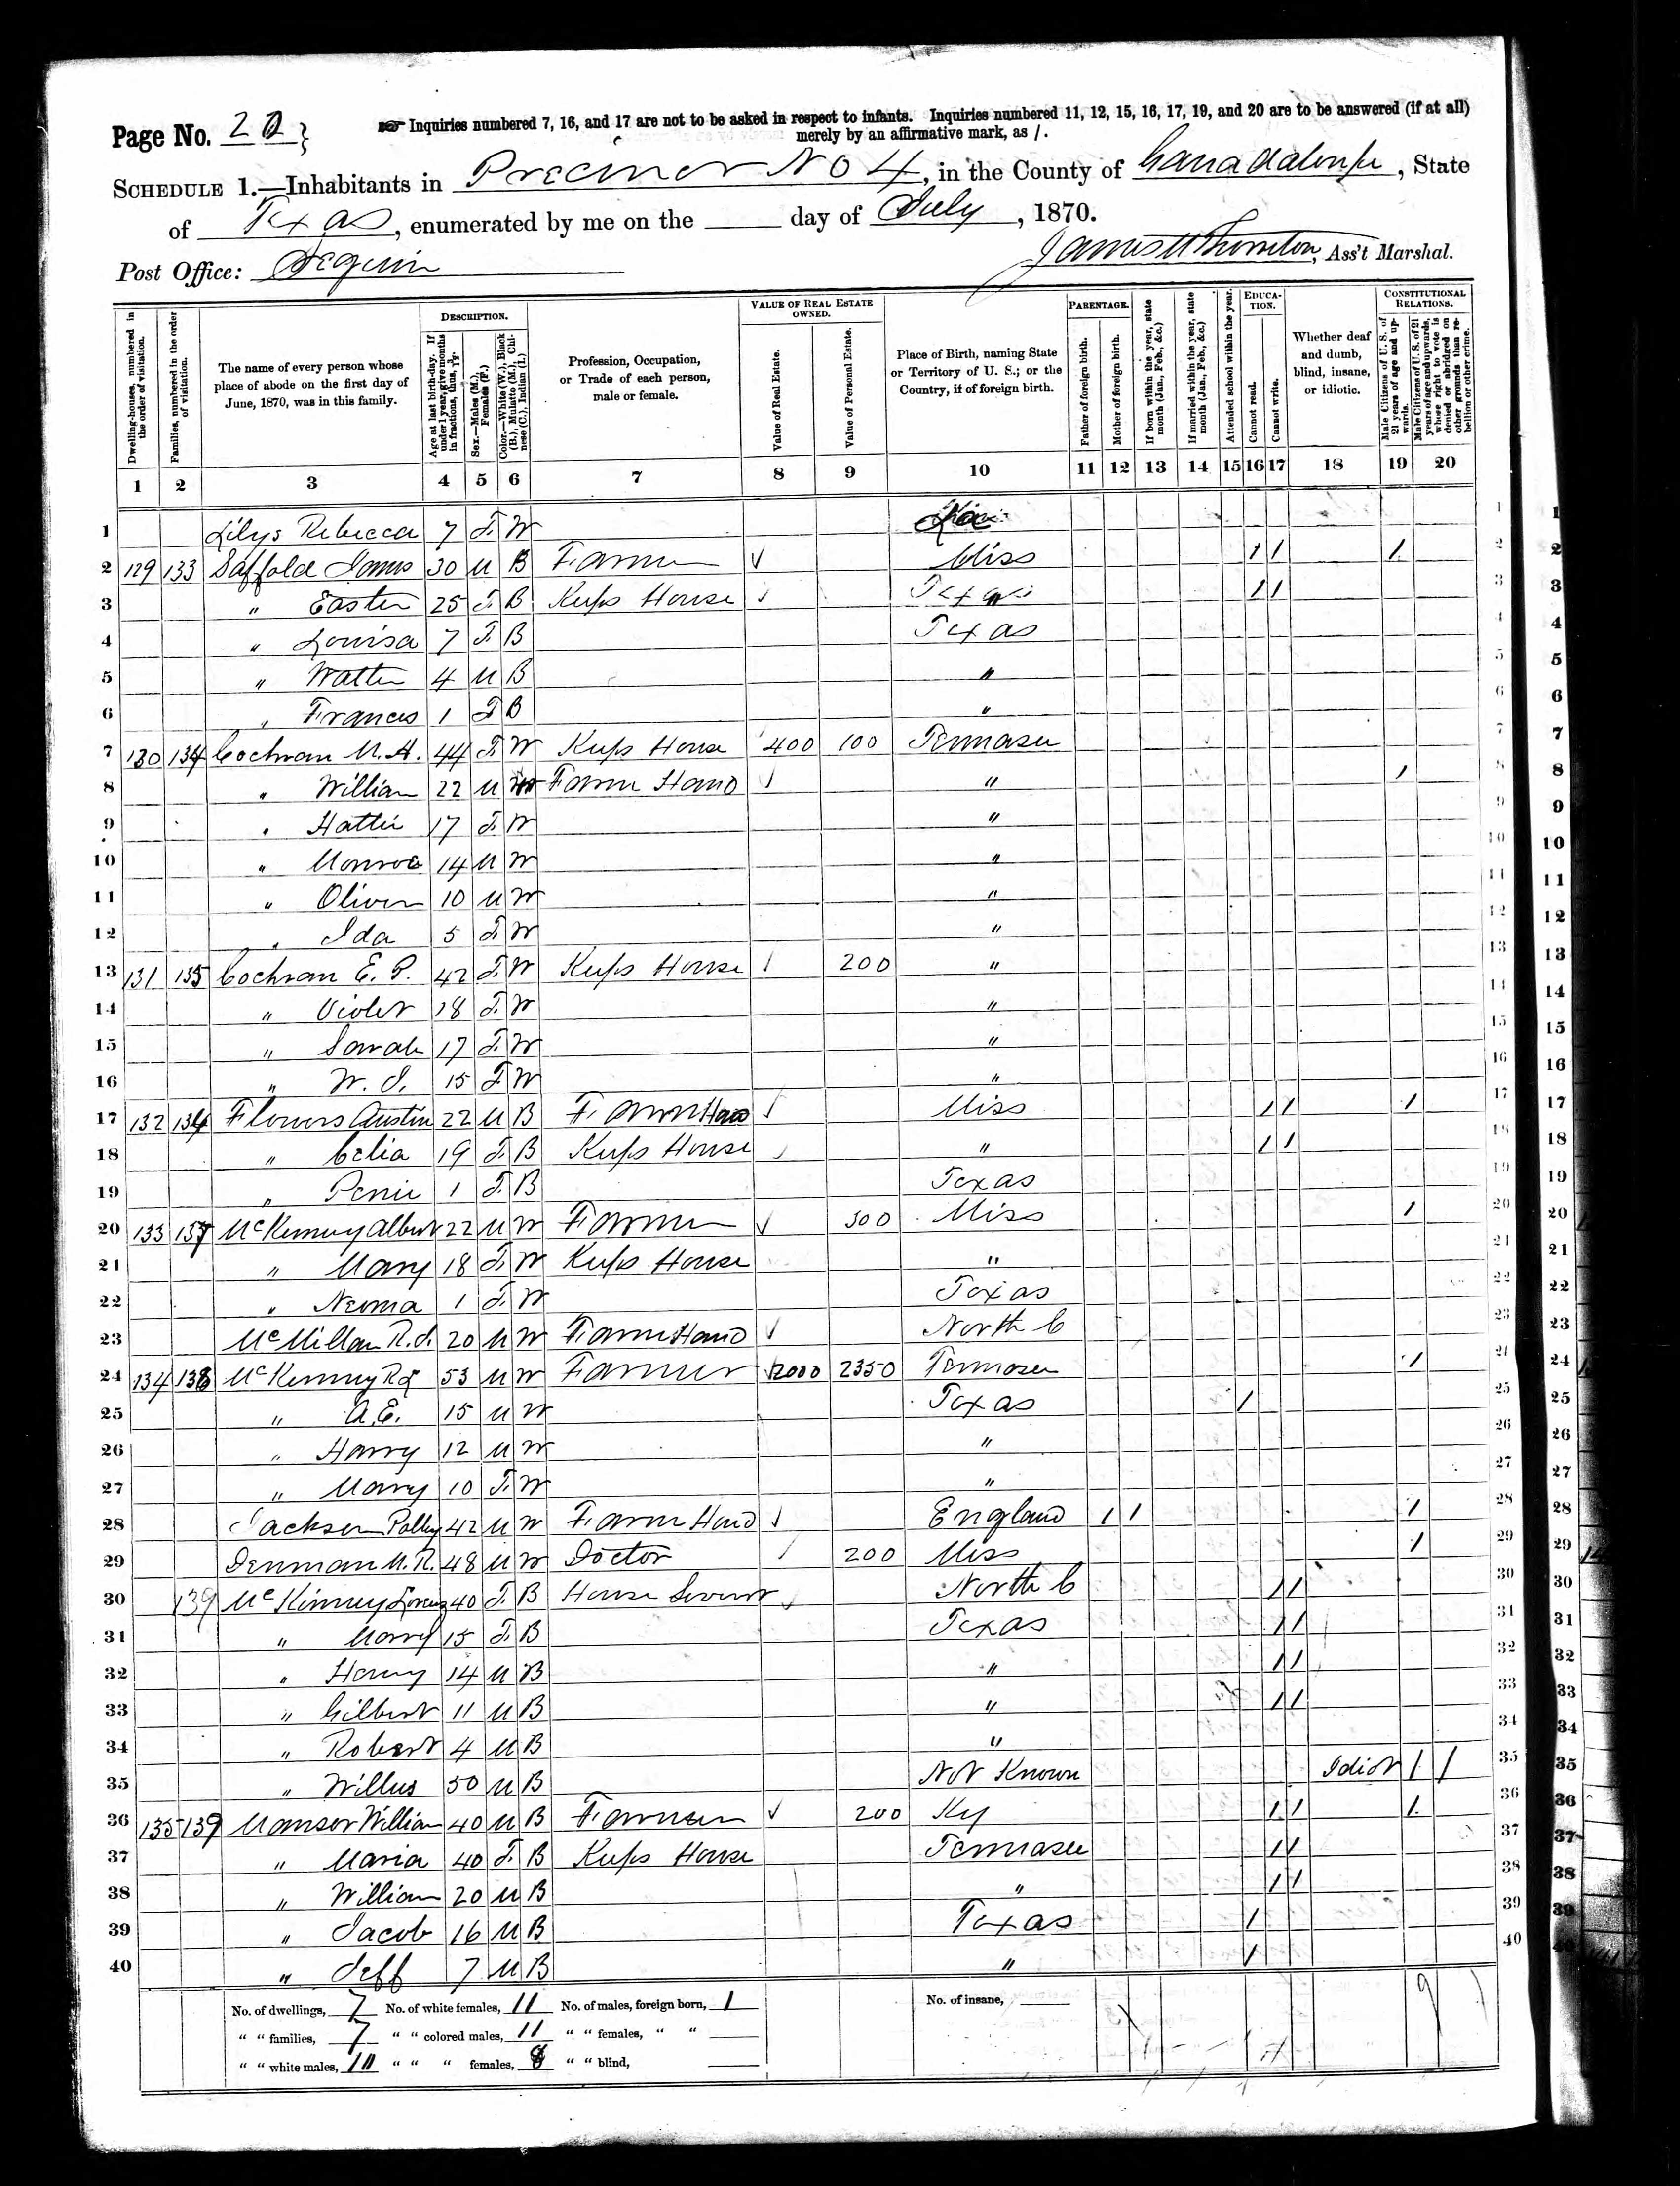 Page No. 20
Inquiries numbered 7, 16, and 17 are not to be asked in respect to infants. Inquiries numbered 11, 12, 15, 16, 17, 19, and 20 are to be answered (if at all)
merely by an affirmative mark, as /.
SCHEDULE 1.—Inhabitants in Precinct No 4, in the County of Guadaloupe, State
of Texas, enumerated by me on the day of July, 1870.
Post Office: Seguin
James W Thornton, Ass't Marshal.
Dwelling-houses, numbered in the order of visitation.
Families, numbered in the order of visitation.
The name of every person whose place of abode on the first day of June, 1870, was in this family.
DESCRIPTION.
Age at last birth-day. If under 1 year, give months in fractions, thus, 3/12.
Sex.—Males (M.), Females (F.)
Color.—White (W.), Black (B.), Mulatto (M.), Chinese (C.), Indian (I.)
Profession, Occupation, or Trade of each person, male or female.
VALUE OF REAL ESTATE OWNED.
Value of Real Estate.
Value of Personal Estate.
Place of Birth, naming State or Territory of U. S.; or the Country, if of foreign birth.
PARENTAGE.
Father of foreign birth.
Mother of foreign birth.
If born within the year, state month (Jan., Feb., &c.)
If married within the year, state month (Jan., Feb., &c.)
Attended school within the year.
EDUCATION.
Cannot read.
Cannot write.
Whether deaf and dumb, blind, insane, or idiotic.
CONSTITUTIONAL RELATIONS.
Male Citizens of U. S. of 21 years of age and upwards.
Male Citizens of U. S. of 21 years of age and upwards, whose right to vote is denied or abridged on other grounds than rebellion or other crime.
1 2 3 4 5 6 7 8 9 10 11 12 13 14 15 16 17 18 19 20
1 Rebecca 7 F W 1
2 129 133 Saffold James 30 M B Farmer ✓ Miss / / / 2
3 " Easter 25 F B Keeps House ✓ / / 3
4 " Louisa 7 F B Texas 4
5 " Walter 4 M B " 5
6 " Frances 1 F B " 6
7 130 134 Cochran M. A. 44 F W Keeps House 400 100 Tennasee 7
8 " William 22 M W Farm Hand ✓ " / 8
9 " Hattie 17 F W " 9
10 " Monroe 14 M W " 10
11 " Oliver 10 M W " 11
12 " Ida 5 F W " 12
13 131 135 Cochran E. P. 42 F W Keeps House / 200 " 13
14 " Violet 18 F W " 14
15 " Sarah 17 F W " 15
16 " W. J. 15 F W " 16
17 132 136 Flowers Austin 22 M B Farm Hand ✓ Miss / / / 17
18 " Celia 19 F B Keeps House ✓ " / / 18
19 " Penie 1 F B Texas 19
20 133 137 McKinney Albert 22 M W Farmer ✓ 300 Miss / 20
21 " Mary 18 F W Keeps House " 21
22 " Neoma 1 F W Texas 22
23 McMillan R. J. 20 M W Farm Hand ✓ North C 23
24 134 138 McKinney R 53 M W Farmer 2000 2350 Tennasee / 24
25 " A. E. 15 M W Texas / 25
26 " Harry 12 M W " 26
27 " Mary 10 F W " 27
28 Jackson 42 M W Farm Hand ✓ England / / / 28
29 Denman M. R. 48 M W Doctor / 200 Miss / 29
30 139 McKinney 40 F B House Servent ✓ North C / / 30
31 " Mary 15 F B Texas / / 31
32 " Henry 14 M B " / / 32
33 " Gilbert 11 M B " / / 33
34 " Robert 4 M B " 34
35 " Willus 50 M B Not Known Idiot / / 35
36 135 139 William 40 M B Farmer ✓ 200 Ky / / / 36
37 " Maria 40 F B Keeps House Tennasee / / 37
38 " William 20 M B " / / 38
39 " Jacob 16 M B Texas / 39
40 " Jeff 7 M B " / 40
No. of dwellings, 7 No. of white females, 11 No. of males, foreign born, 1 No. of insane, 9
" " families, 7 " " colored males, 11 " " females, " "
" " white males, 10 " " " females, 8 " " blind,